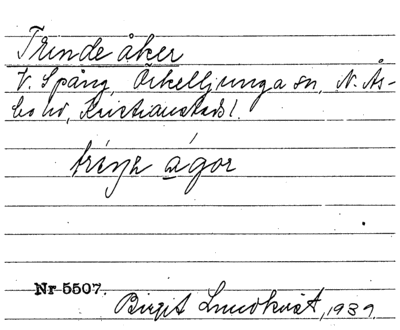 Trinde åker
V. Spång, Örkelljunga sn, N. Ås-
bo hd, Kristianstads l.
trínə ågor
Nr 5507.
Birgit Lundkvist, 1939